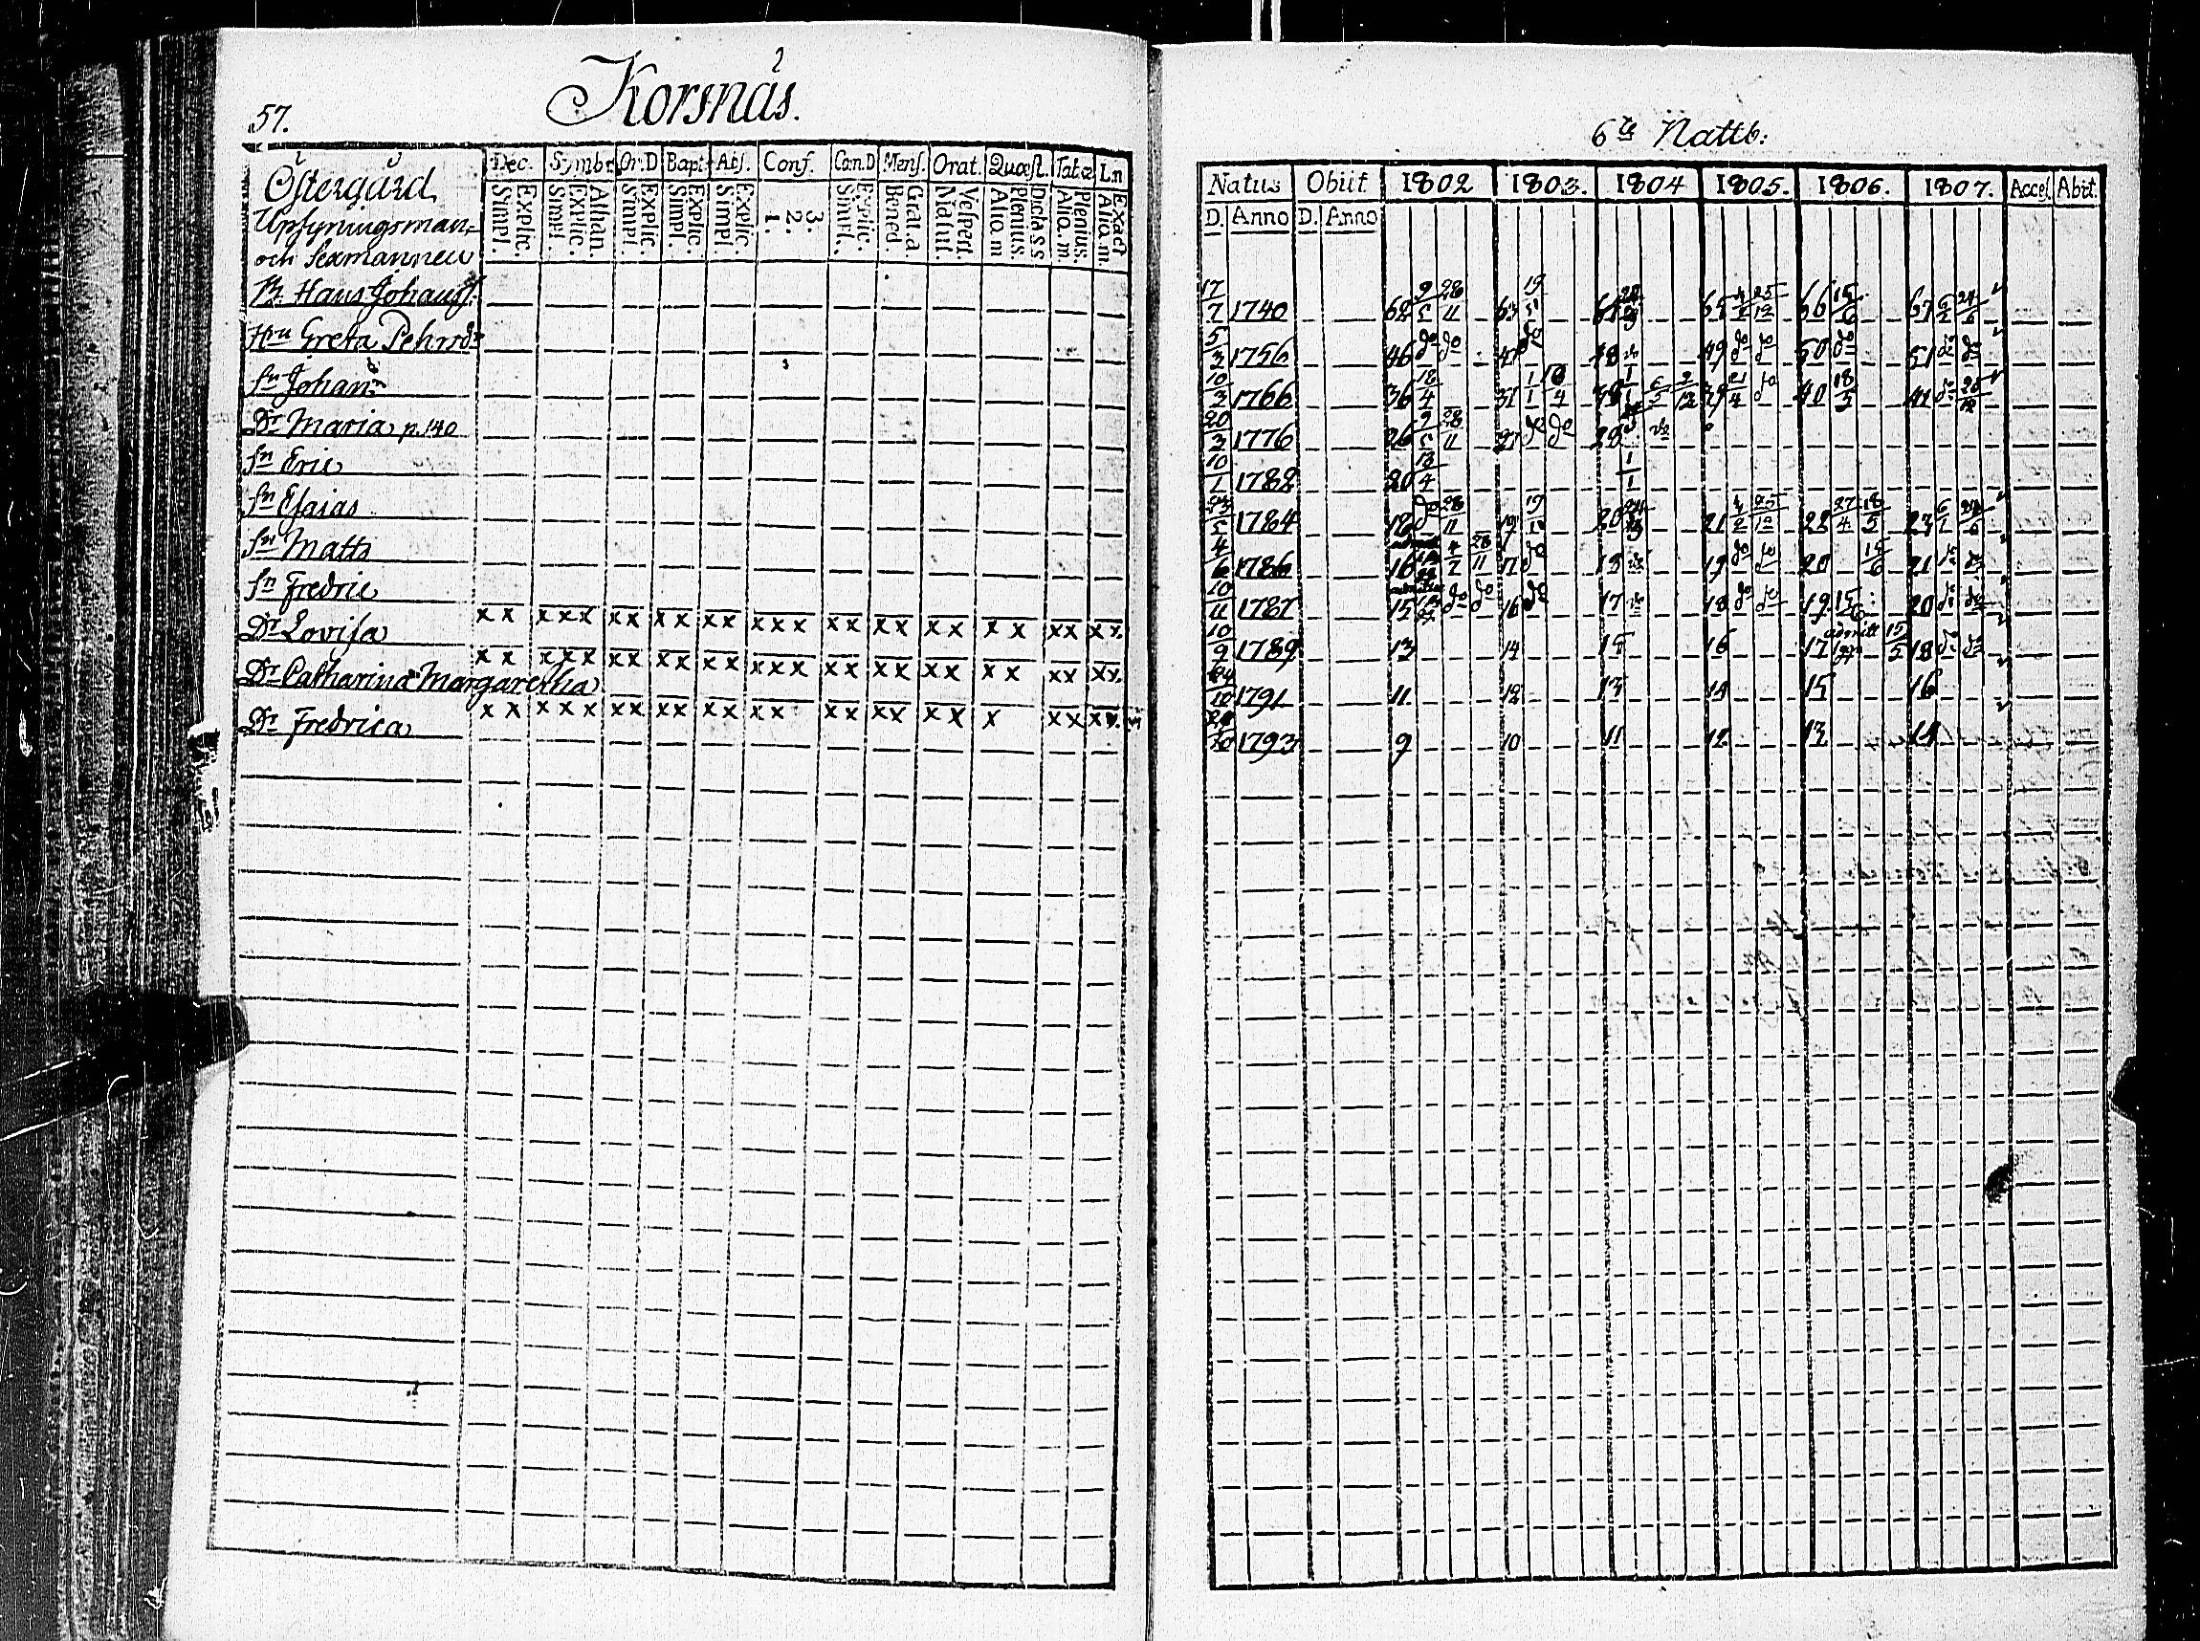 57.
Korsnäs.
Östergård
Upsyningsman
och Sexmannen
B. Hans Johanss.
Hu Greta Pehrsdr
Sn Johan
Dr Maria p. 140
Sn Eric
Sn Esaias
Sn Matts
Sn Fredric
Dr Lovisa
Dr Catharina Margaretha
Dr Fredrica
Dec. Symb. Or.D Bapt. Abs. Conf. Cæn.D Mens. Orat. Quæst. Tab.æ L.n
Simpl. Explic. Simpl. Explic. Athan. Simpl. Explic. Simpl. Explic. Simpl. Explic. 1. 2. 3. Simpl. Explic. Bened. Grat.a. Matut. Vespert. Alio.m Plenius. Dictass Alio.m. Plenius. Alio.m. Exact
x x x x x x x x x x x x x x x x x x x x x x x x x x
x x x x x x x x x x x x x x x x x x x x x x x x x x
x x x x x x x x x x x x x x x x x x x x x x x x
6te Nattb:
Natus Obiit 1802 1803. 1804 1805. 1806. 1807. Acces. Abit.
D. Anno D. Anno
17/7 1740 62 9/5 28/11 63 19/5 64 65 25/12 66 15/6 67 6/1 24/6
5/3 1756 46 do do 47 do 48 do 49 do do 50 do 51 do do
10/3 1766 36 18/4 37 1/1 10/4 38 1/1 39 21/4 do 40 18/5 41 do
20/3 1776 26 9/5 28/11 27 do do 28 do
10/1 1782 20 18/4 1/1
5 1784 18 do 28/11 19 19/5 20 21 25/12 22 27/4 18/5 23 6/1
4/6 1786 16 28/11 17 do 18 do 19 do do 20 15/6 21 do do
10/11 1787 15 do do 16 do 17 do 18 do do 19 15/6 20 do do
10/9 1789 13 14 15 16 17 admitt 15/5 18 do do
12 1791 11 12 13 14 15 16
10 1793 9 10 11 12 13 14